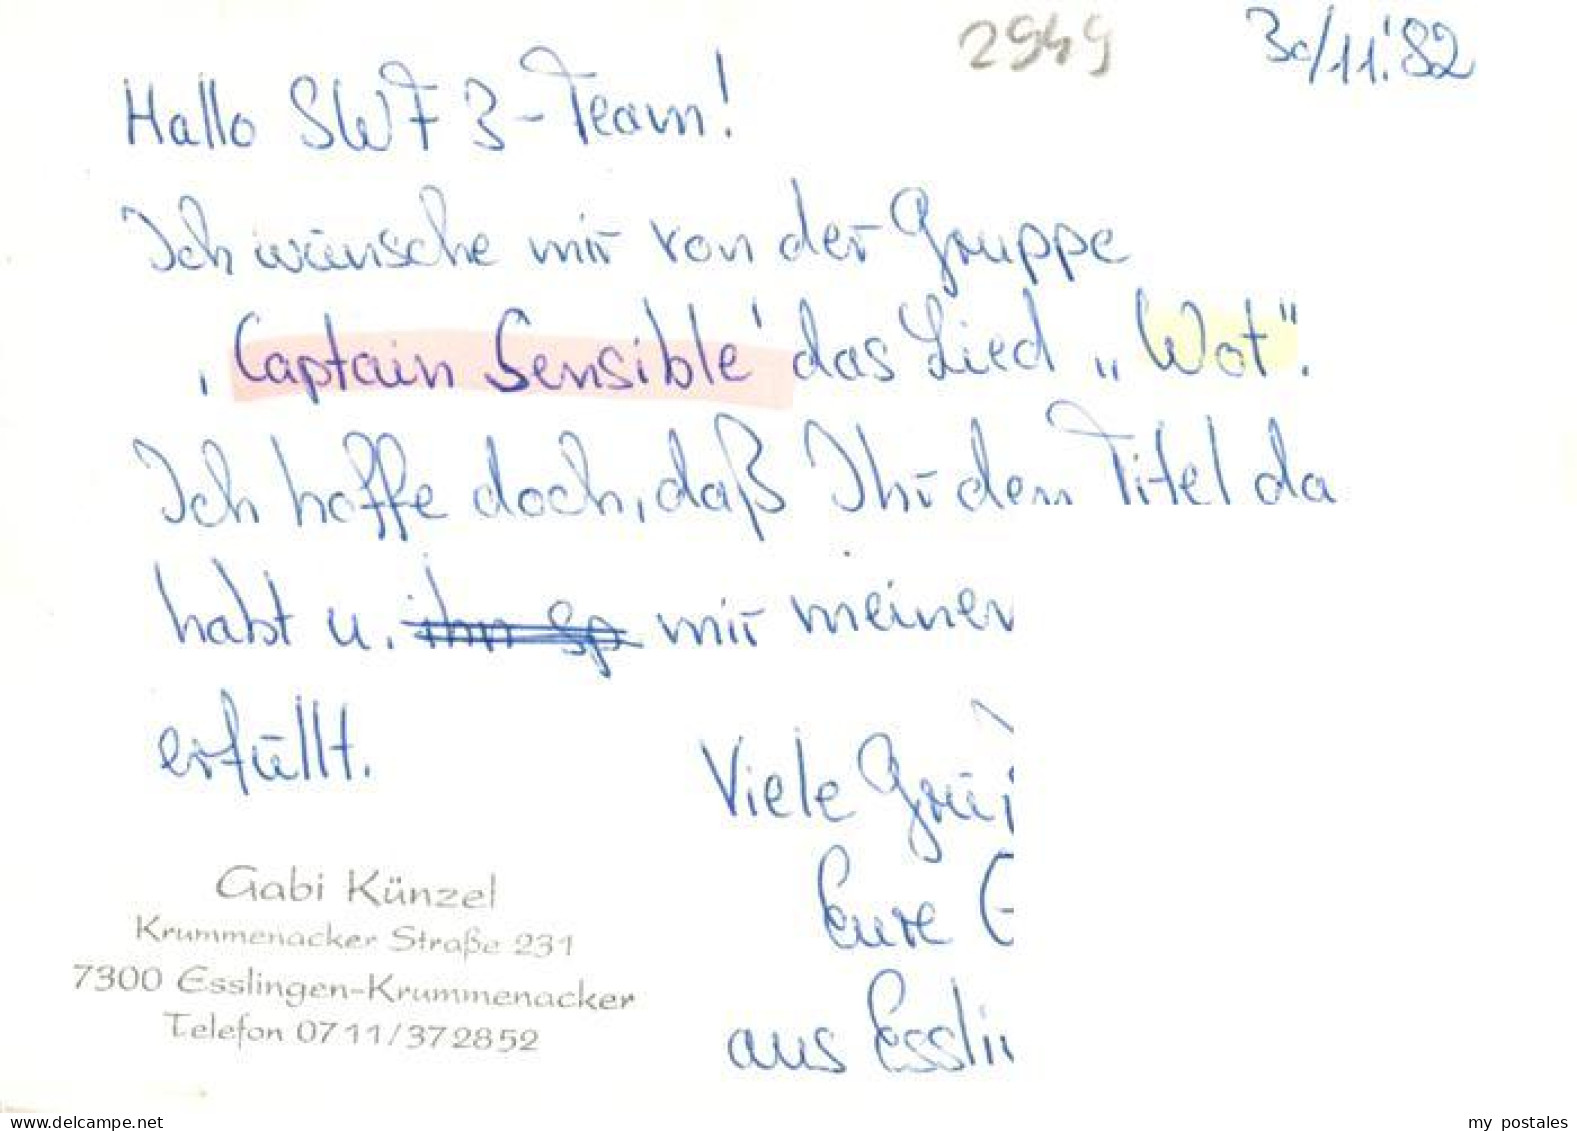 2949
30/11.'82
Hallo SWF 3-Team!
Ich wünsche mir von der Gruppe
‚Captain Sensible' das Lied „Wot".
Ich hoffe doch, daß Ihr den Titel da
habt u. ihn sp mir meinen
erfüllt.
Viele Grü
Eure G
aus Esslin
Gabi Künzel
Krummenacker Straße 231
7300 Esslingen-Krummenacker
Telefon 0711/372852
www.delcampe.net
my_postales